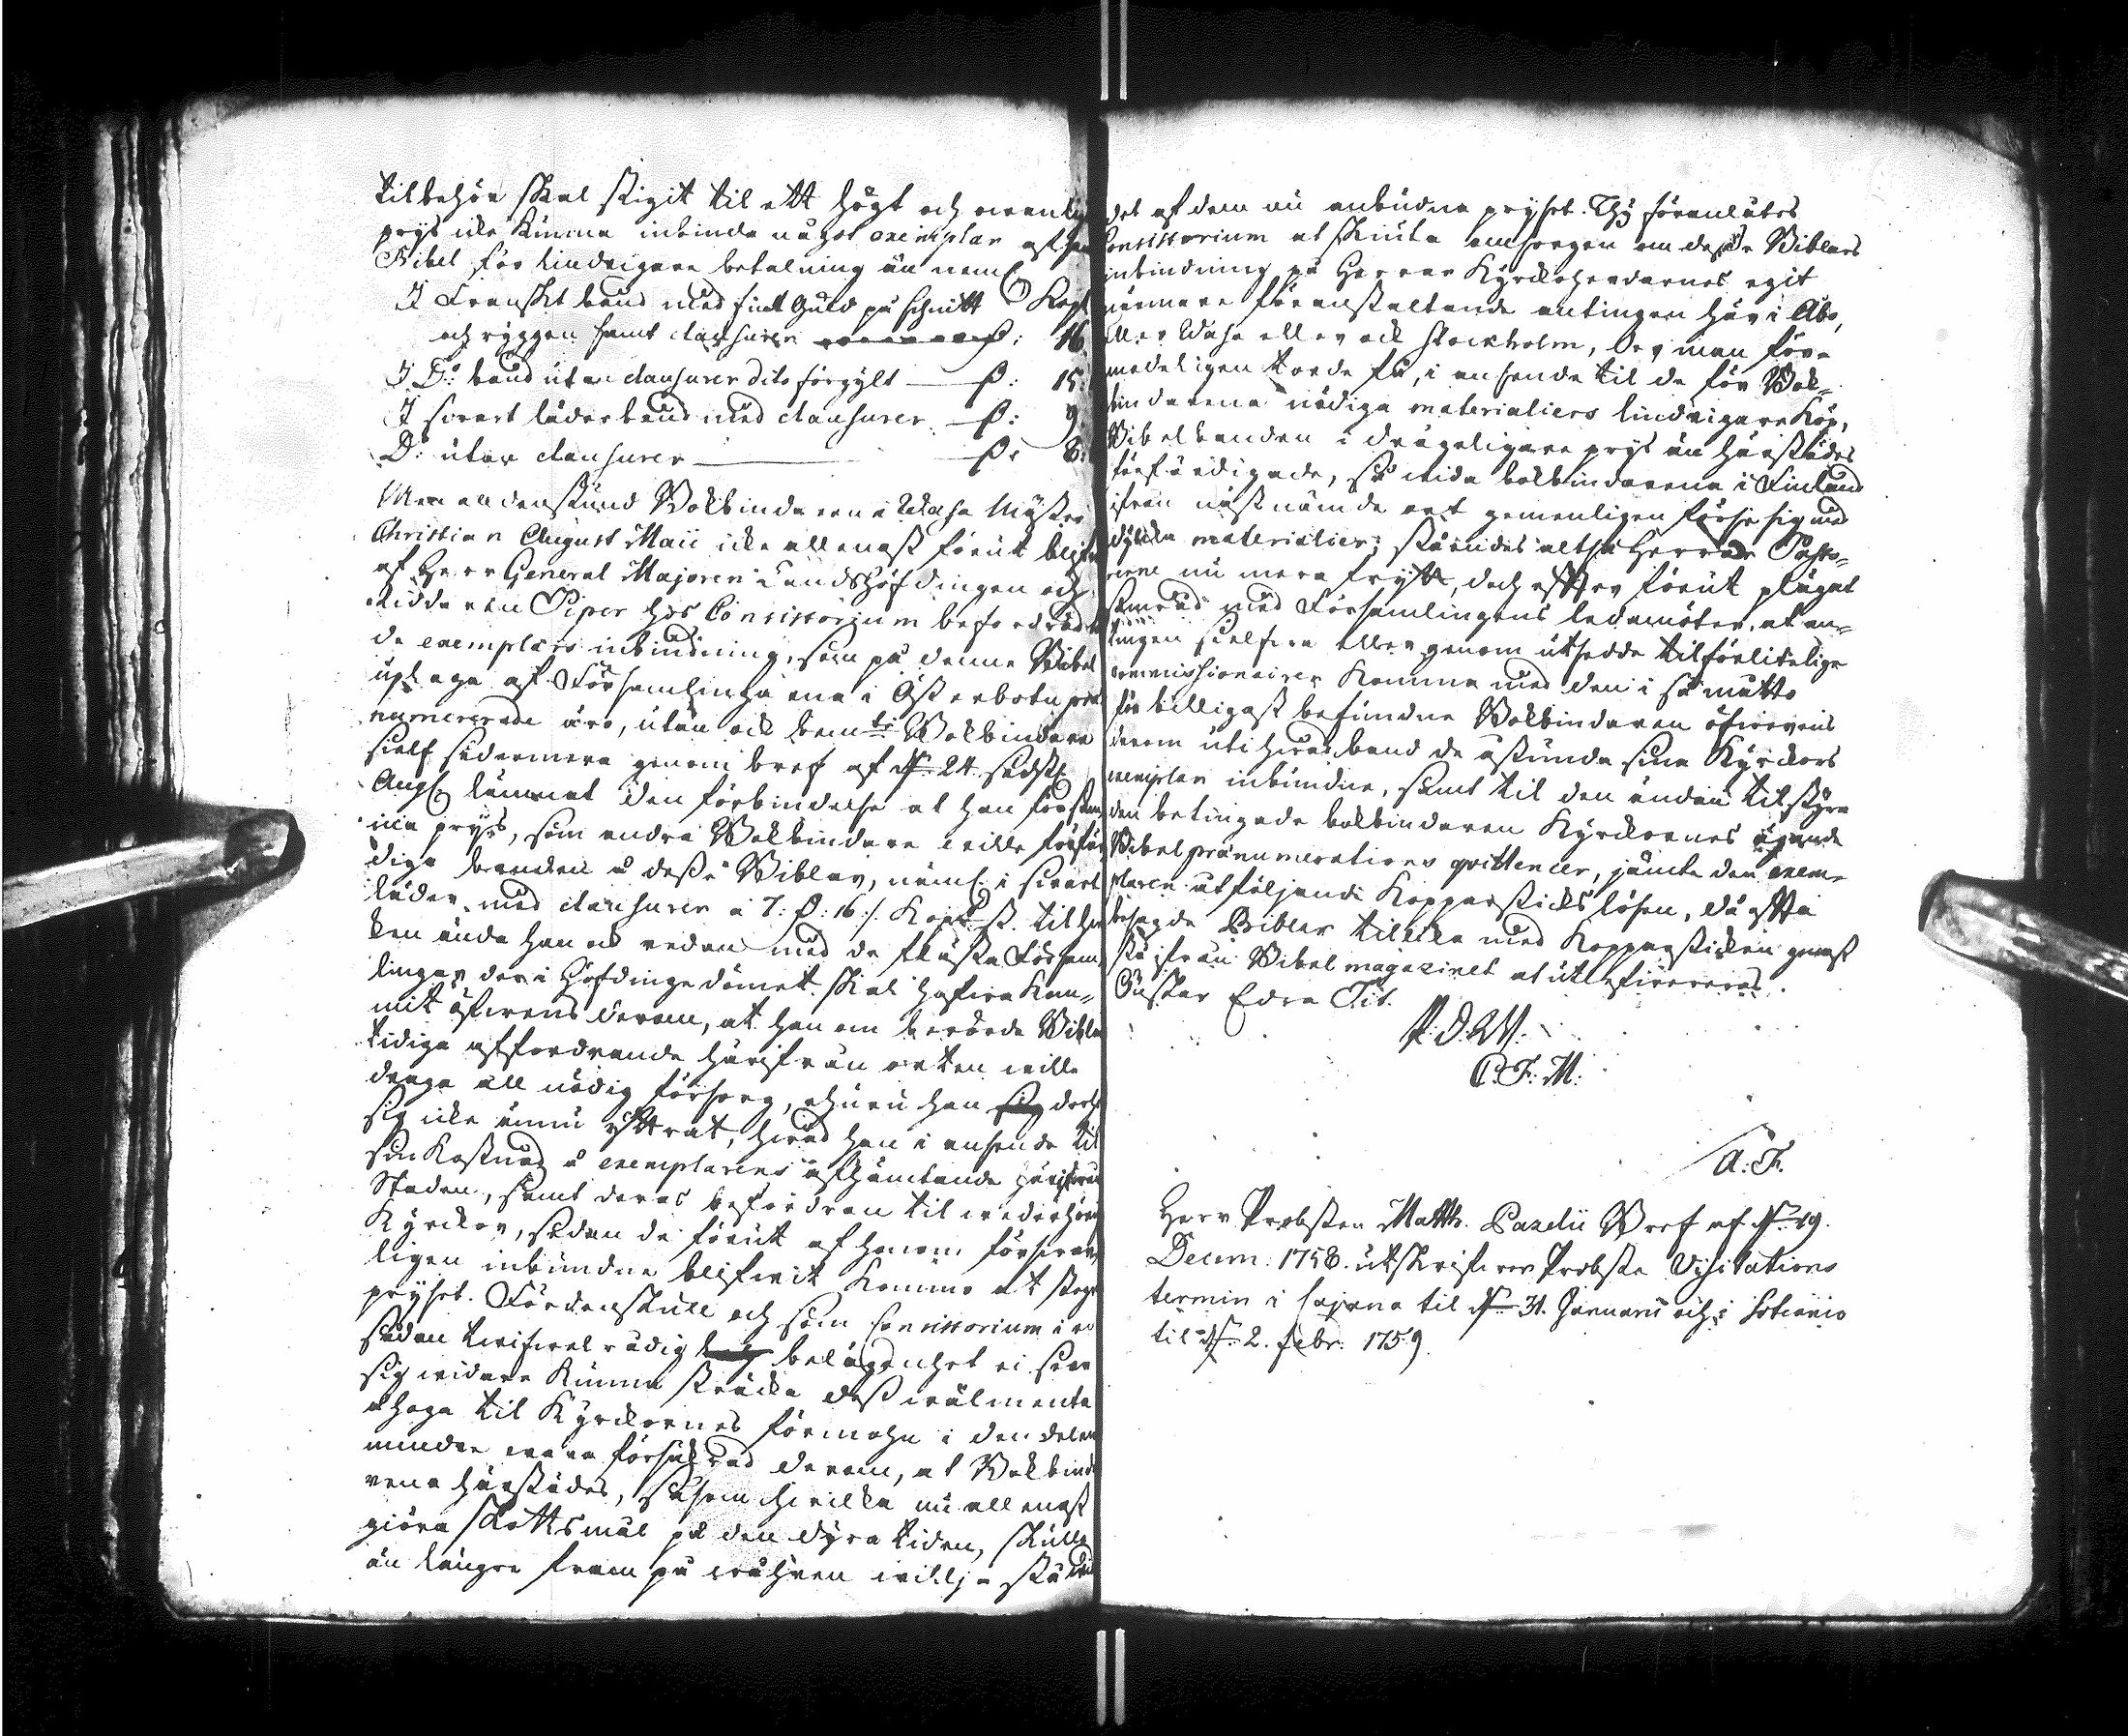 tilbehör skal stigit til ett högt och owanligt
prys icke kunna inbinda något exemplar af den
Bibel för lindrigare betalning än neml.
I Franskt band med fint Guld på schnitt Kopt
och ryggen samt clausurer 16
I D:o band utan clausurer dito förgylt 15:
I swart läderband med clausurer 9
D:o utan clausurer 8:
Men alldenstund Bokbindaren i Wasa Mäster
Christian August Maii icke allenast förut blifwit
af Herr General Majoren Landshöfdingen och
Riddaren Piper hos Consistorium befordrad til
de exemplars inbindning, som på denna Bibel
uplaga af Församlingarna i Österbotn præ
numererade äro, utan ock bem:te Bokbindare
sielf sedermera genom bref af d. 24 sidstl.
Aug. lämnat den förbindelse at han för samma
prys, som andra Bokbindare wille förfär
diga banden å desse Biblar, neml. i swart
läder med clausurer a 7: 16 Kopt til hwil
ken ända han ock redan med de flästa Försam
lingar der i Höfdingedömet skal hafwa kom-
mit öfwerens derom, at han om berörde Biblars
tidiga affordrande härifrån orten wille
draga all nödig försorg, ehuru han sig dock
sig icke ännu yttrat, hwad han i anseende til
sin kostnad å exemplarens afhämtande härifrån
Staden, samt deras befordran til wederbörande
Kyrckor, sedan de förut af honom förswar
ligen inbundne blifwit komme at stega
pryset. Fördenskull och som Consistorium i en
sådan twifwelrådig belägenhet ei kan
sig widare kunna sträcka dess wälmenta
åhoga til Kyrckornes förmohn i den delen
mindre wara försäkrad derom, at Bokbinda
rena härstädes, såsom hwilka nu allenast
giöra skottsmål på den dyra tiden, skulle
än längre fram på wåhren willja stå wid
det af dem nu anbudna pryset. Thy föranlåtes
Consistorium at skiuta omsorgen om desse Biblars
inbindning på Herrar Kyrckoherdarnes egit
närmare föranstaltande antingen här i Åbo,
eller Wasa eller ock Stockholm, der man för-
modeligen torde få, i anseende til de för Bok-
bindarena nödiga materialiers lindrigare köp,
Bibelbanden i drägeligare prys än härstädes
förfärdigade, så wida bokbindarena i Finland
ifrån nästnämde ort gemenligen förse sig med
dylika materialier; ståendes altså Herrar Pasto-
rerne nu mera fritt, doch efter förut plägat
samråd med Församlingens ledamöter, at an-
tingen sielfwa eller genom utsedde tilförlitelige
commissionairer komma med den i så måtto
för billigast befundne Bokbindaren öfwerens
derom uti hwad band de åstunda sina Kyrckors
exemplar inbundne, samt til den ändan tilstyra
den betingade bokbindaren Kyrckornes ägande
Bibel prænumerations qvittencer, jämte den exem-
plaren åtföljande Kopparsticks lösen, då ofta
besagde Biblar tillika med Kopparsticken genast
stå ifrån Bibel magazinet at utlefwereras.
Önskar Edra Tit.
P. D. W.
C. F. M:
A: F.
Herr Probsten Matth. Pazelii Bref af d. 19.
Decem: 1758. utskrifwer Probste Visitations
termin i Cajana til d. 31. Januarii och i Sotkamo
til d. 2. febr: 1759.